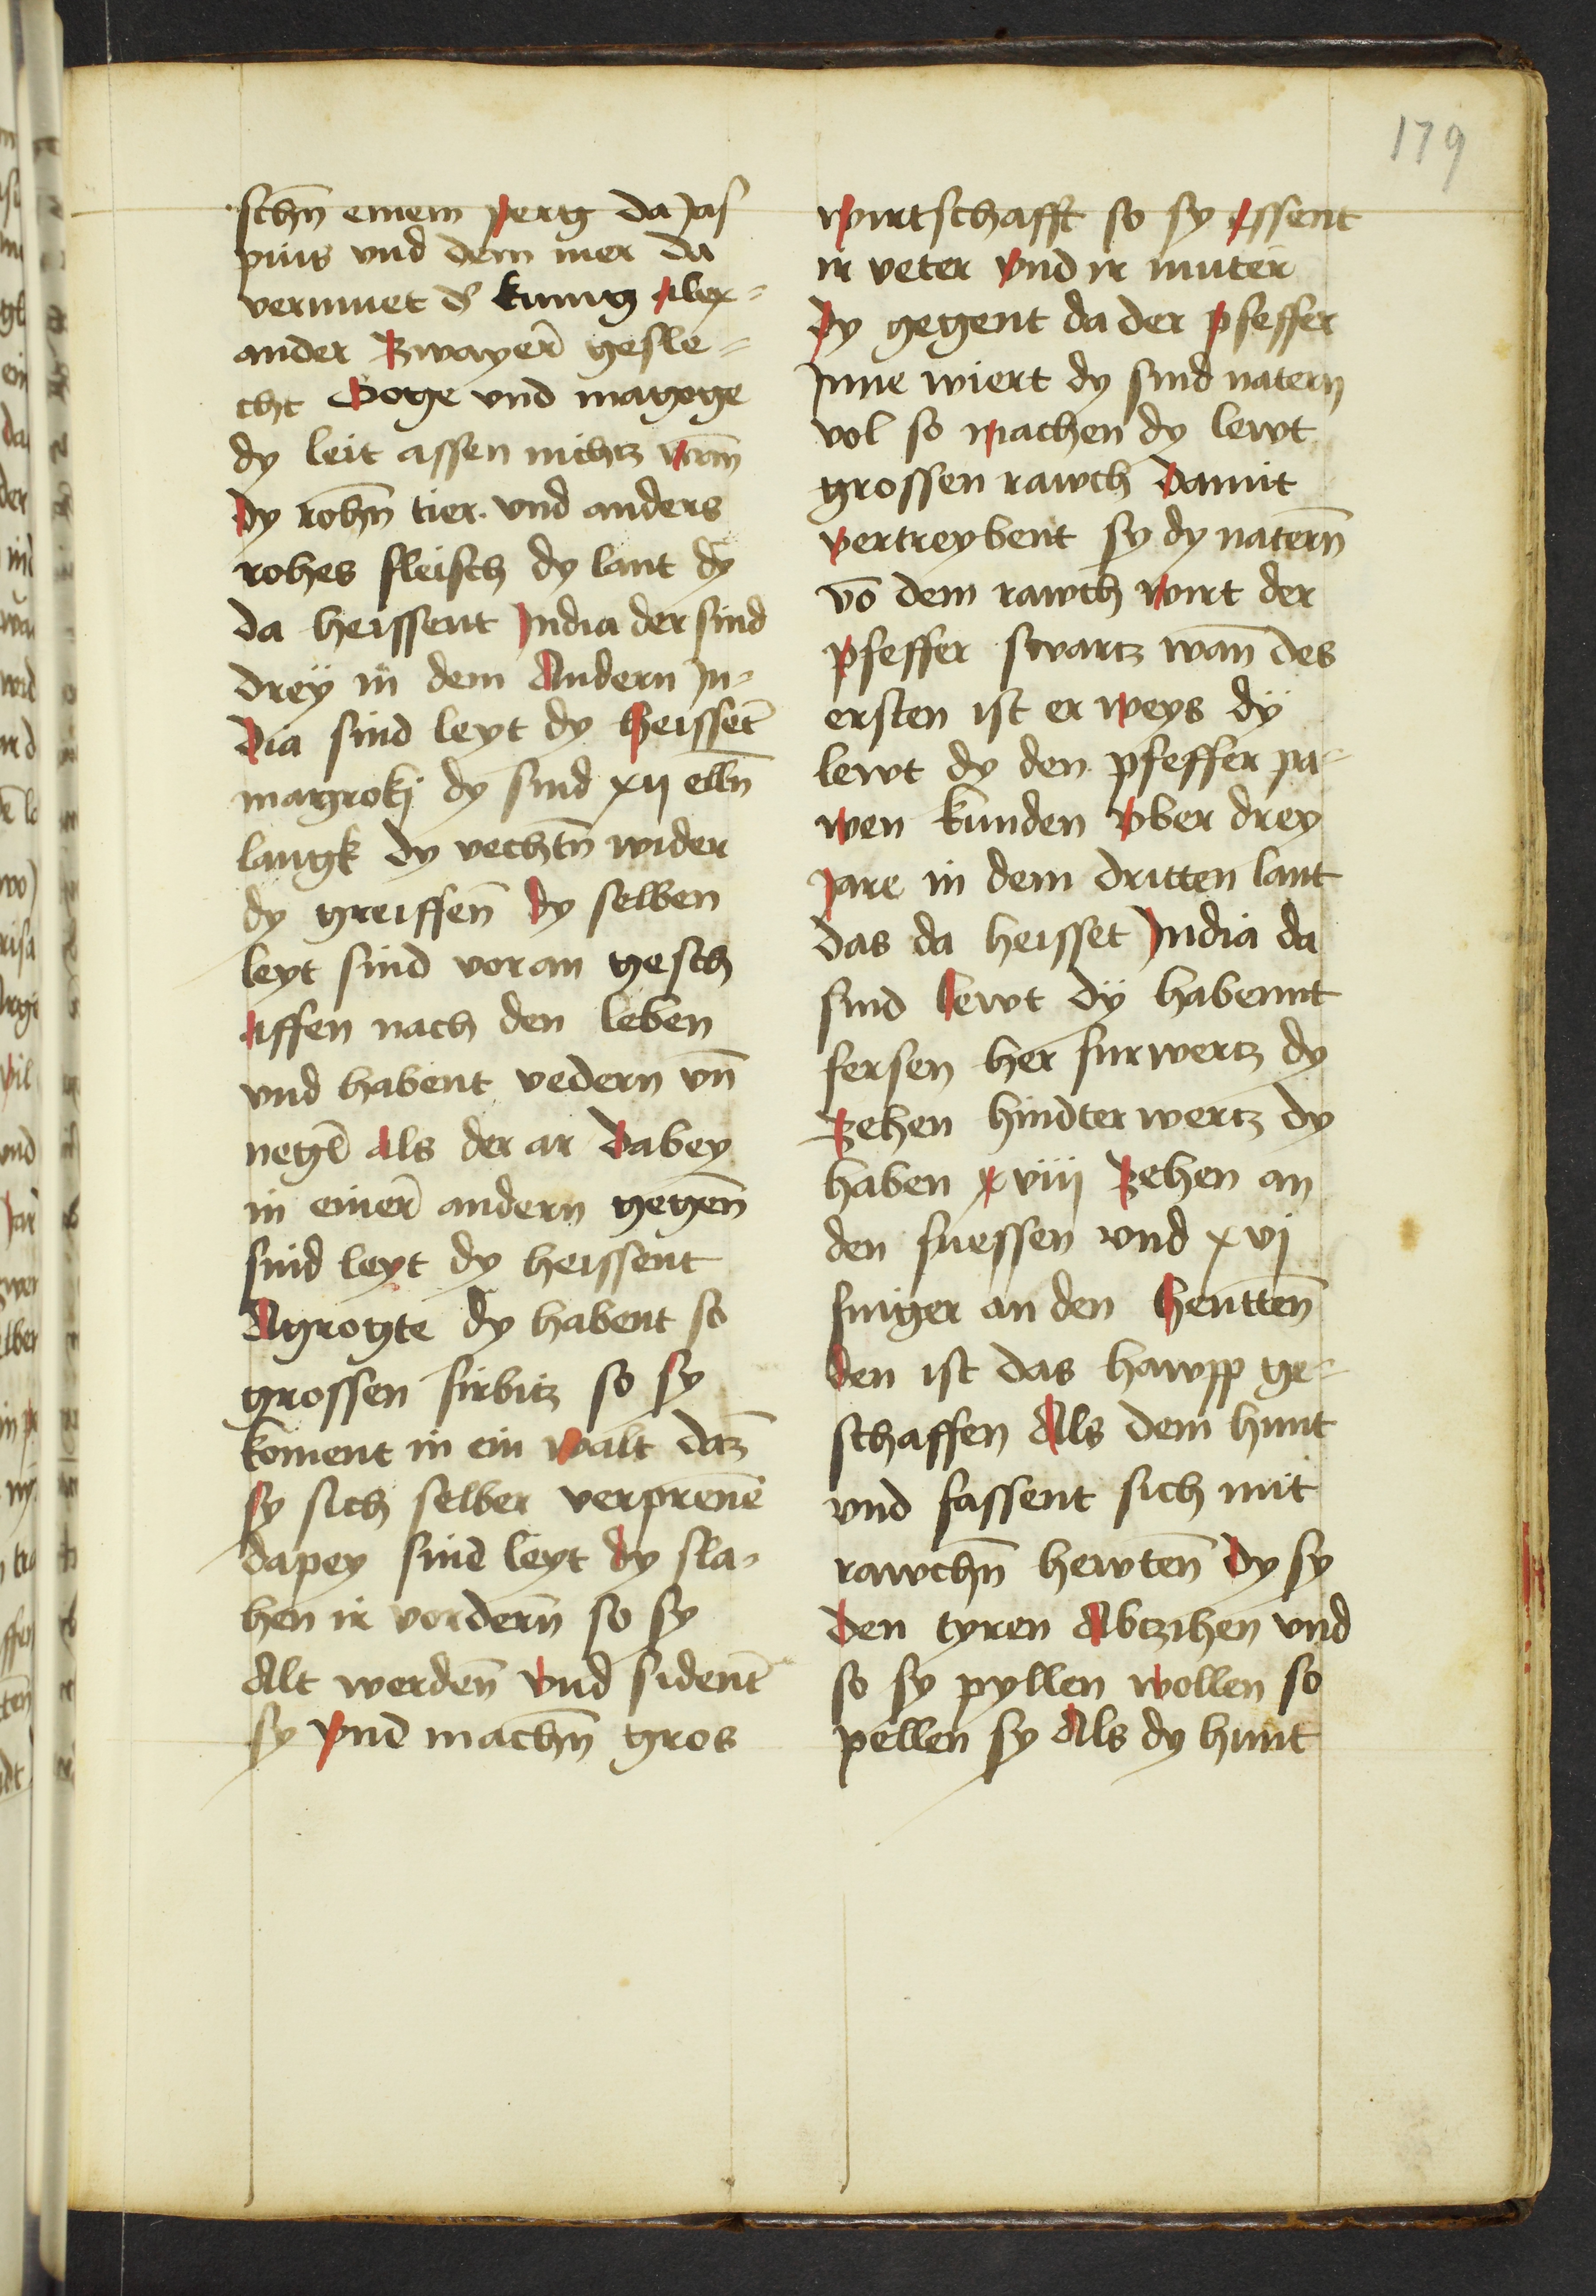 179
schn̄ einem perg da Jas
pius vnd dem mer da
vermuet ds̉ kunig Alex=
ander Zwayer̄ gesle=
cht Goge vnd magoge
dy leit assen nichtz wan̄
Dy rohn̄ tier vnd anders
rohes fleisch dy lant dy
da heissent India der sind
dreÿ in dem Andern In=
dia sind leyt dy heisset̄
magrokj dy sind xij elln̄
langk dy vechtn̄ wider
dy greiffen̄ dy selben
leyt sind voran gesch
affen nach den leben
vnd habent vedern vn̄
negel̄ als der ar dabey
in einer̄ andern gegen̄
sind leyt dy heissent
Agrogte dy habent so
grossen firbitz so sy
koment in ein walt datz̄
sy sich selber verprenē
dapey sind leyt dy sla=
hen ir vordern̄ so sy
Alt werden̄ vnd sident̄
sy vnd machn̄ gros
wirtschafft so sy essent
ir veter vnd ir muter
dy gegent da der pfeffer
Inne wiert dy sind natern
vol so machen dy lewt
grossen rawch damit
vertreybent sy dy natern̄
vō dem rawch wirt der
pfeffer swartz wan̄ des
ersten ist er weys dÿ
lewt dy den pfeffer pa=
wen kunden vber drey
Jare in dem dritten lant
das da heisset India da
sind lewt dÿ habennt
fersen her furwertz dy
Zehen hindter wertz dy
haben xviij Zehen an
den fuessen vnd xvj
finger an den hentten̄
den ist das hawpp ge=
schaffen Als dem hunt
vnd fassent sich mit
rawchn̄ hewten̄ dy sy
den tyren Abtzihen vnd
so sy pyllen wollen so
pellen sy Als dy hunt